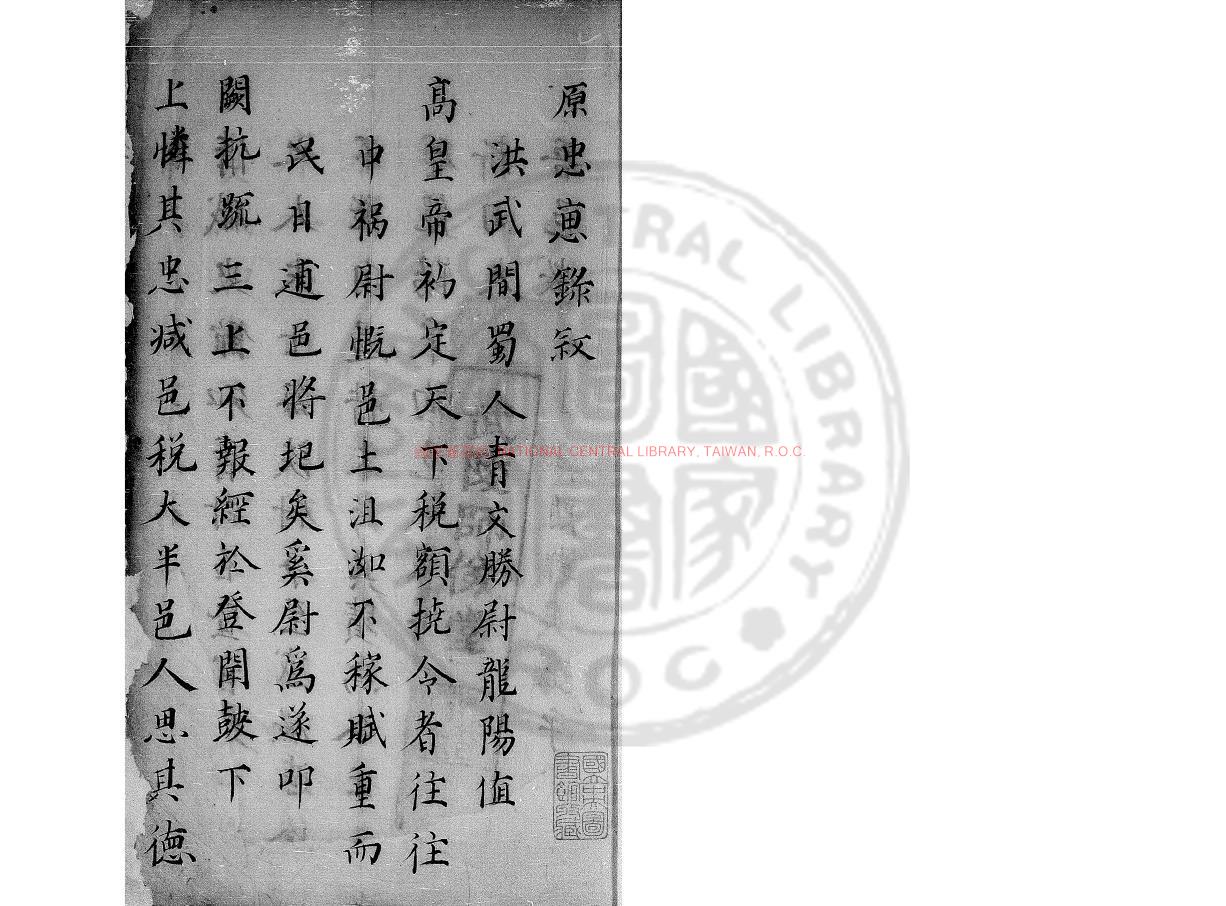 原忠恵錄敘
洪武間蜀人青文勝尉龍陽值
髙皇帝初定天下税額撓令者往往
中禍尉慨邑土沮洳不稼賦重而
民日逋邑將圯矣奚尉爲遂叩
闕抗䟽三上不報經於登聞皷下
上憐其忠减邑税大半邑人思其德
NATIONAL CENTRAL LIBRARY, TAIWAN, R.O.C.
CENTRAL LIBRARY
R.O.C
國家圖書館藏